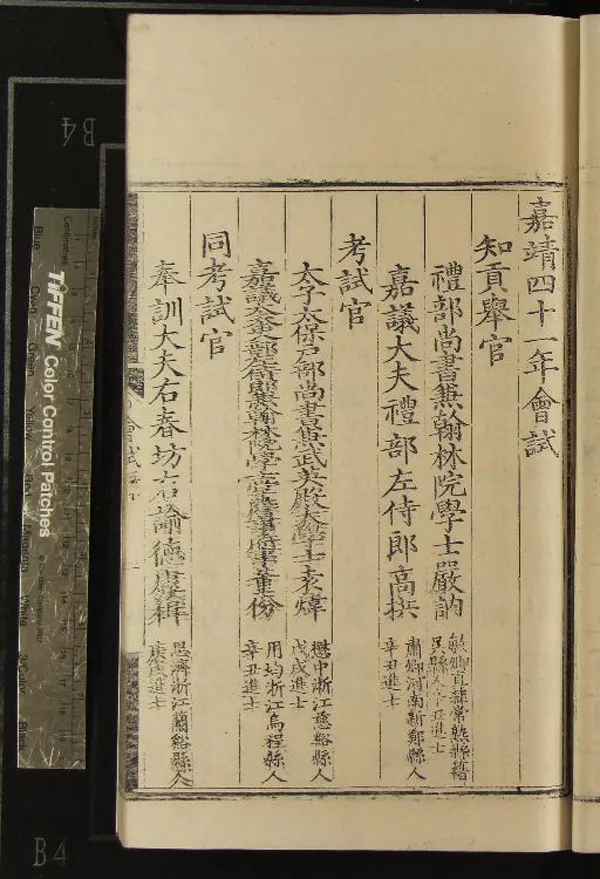 嘉靖四十一年會試
知貢舉官
禮部尚書兼翰林院學士嚴訥
敏卿直隸常熟縣籍
吳縣人辛丑進士
嘉議大夫禮部左侍郎高拱
肅卿河南新鄭縣人
辛丑進士
考試官
太子太保戶部尚書兼武英殿大學士袁煒
懋中浙江慈谿縣人
戊戌進士
嘉議大夫吏部左侍郎兼翰林院學士董份
用均浙江烏程縣人
辛丑進士
同考試官
奉訓大夫右春坊右諭德
思濟浙江蘭谿縣人
庚戌進士
會試
TIFFEN Color Control Patches
Centimetres
Blue
Cyan
Green
Yellow
Red
Magenta
White
3/Color
Black
B4
B4